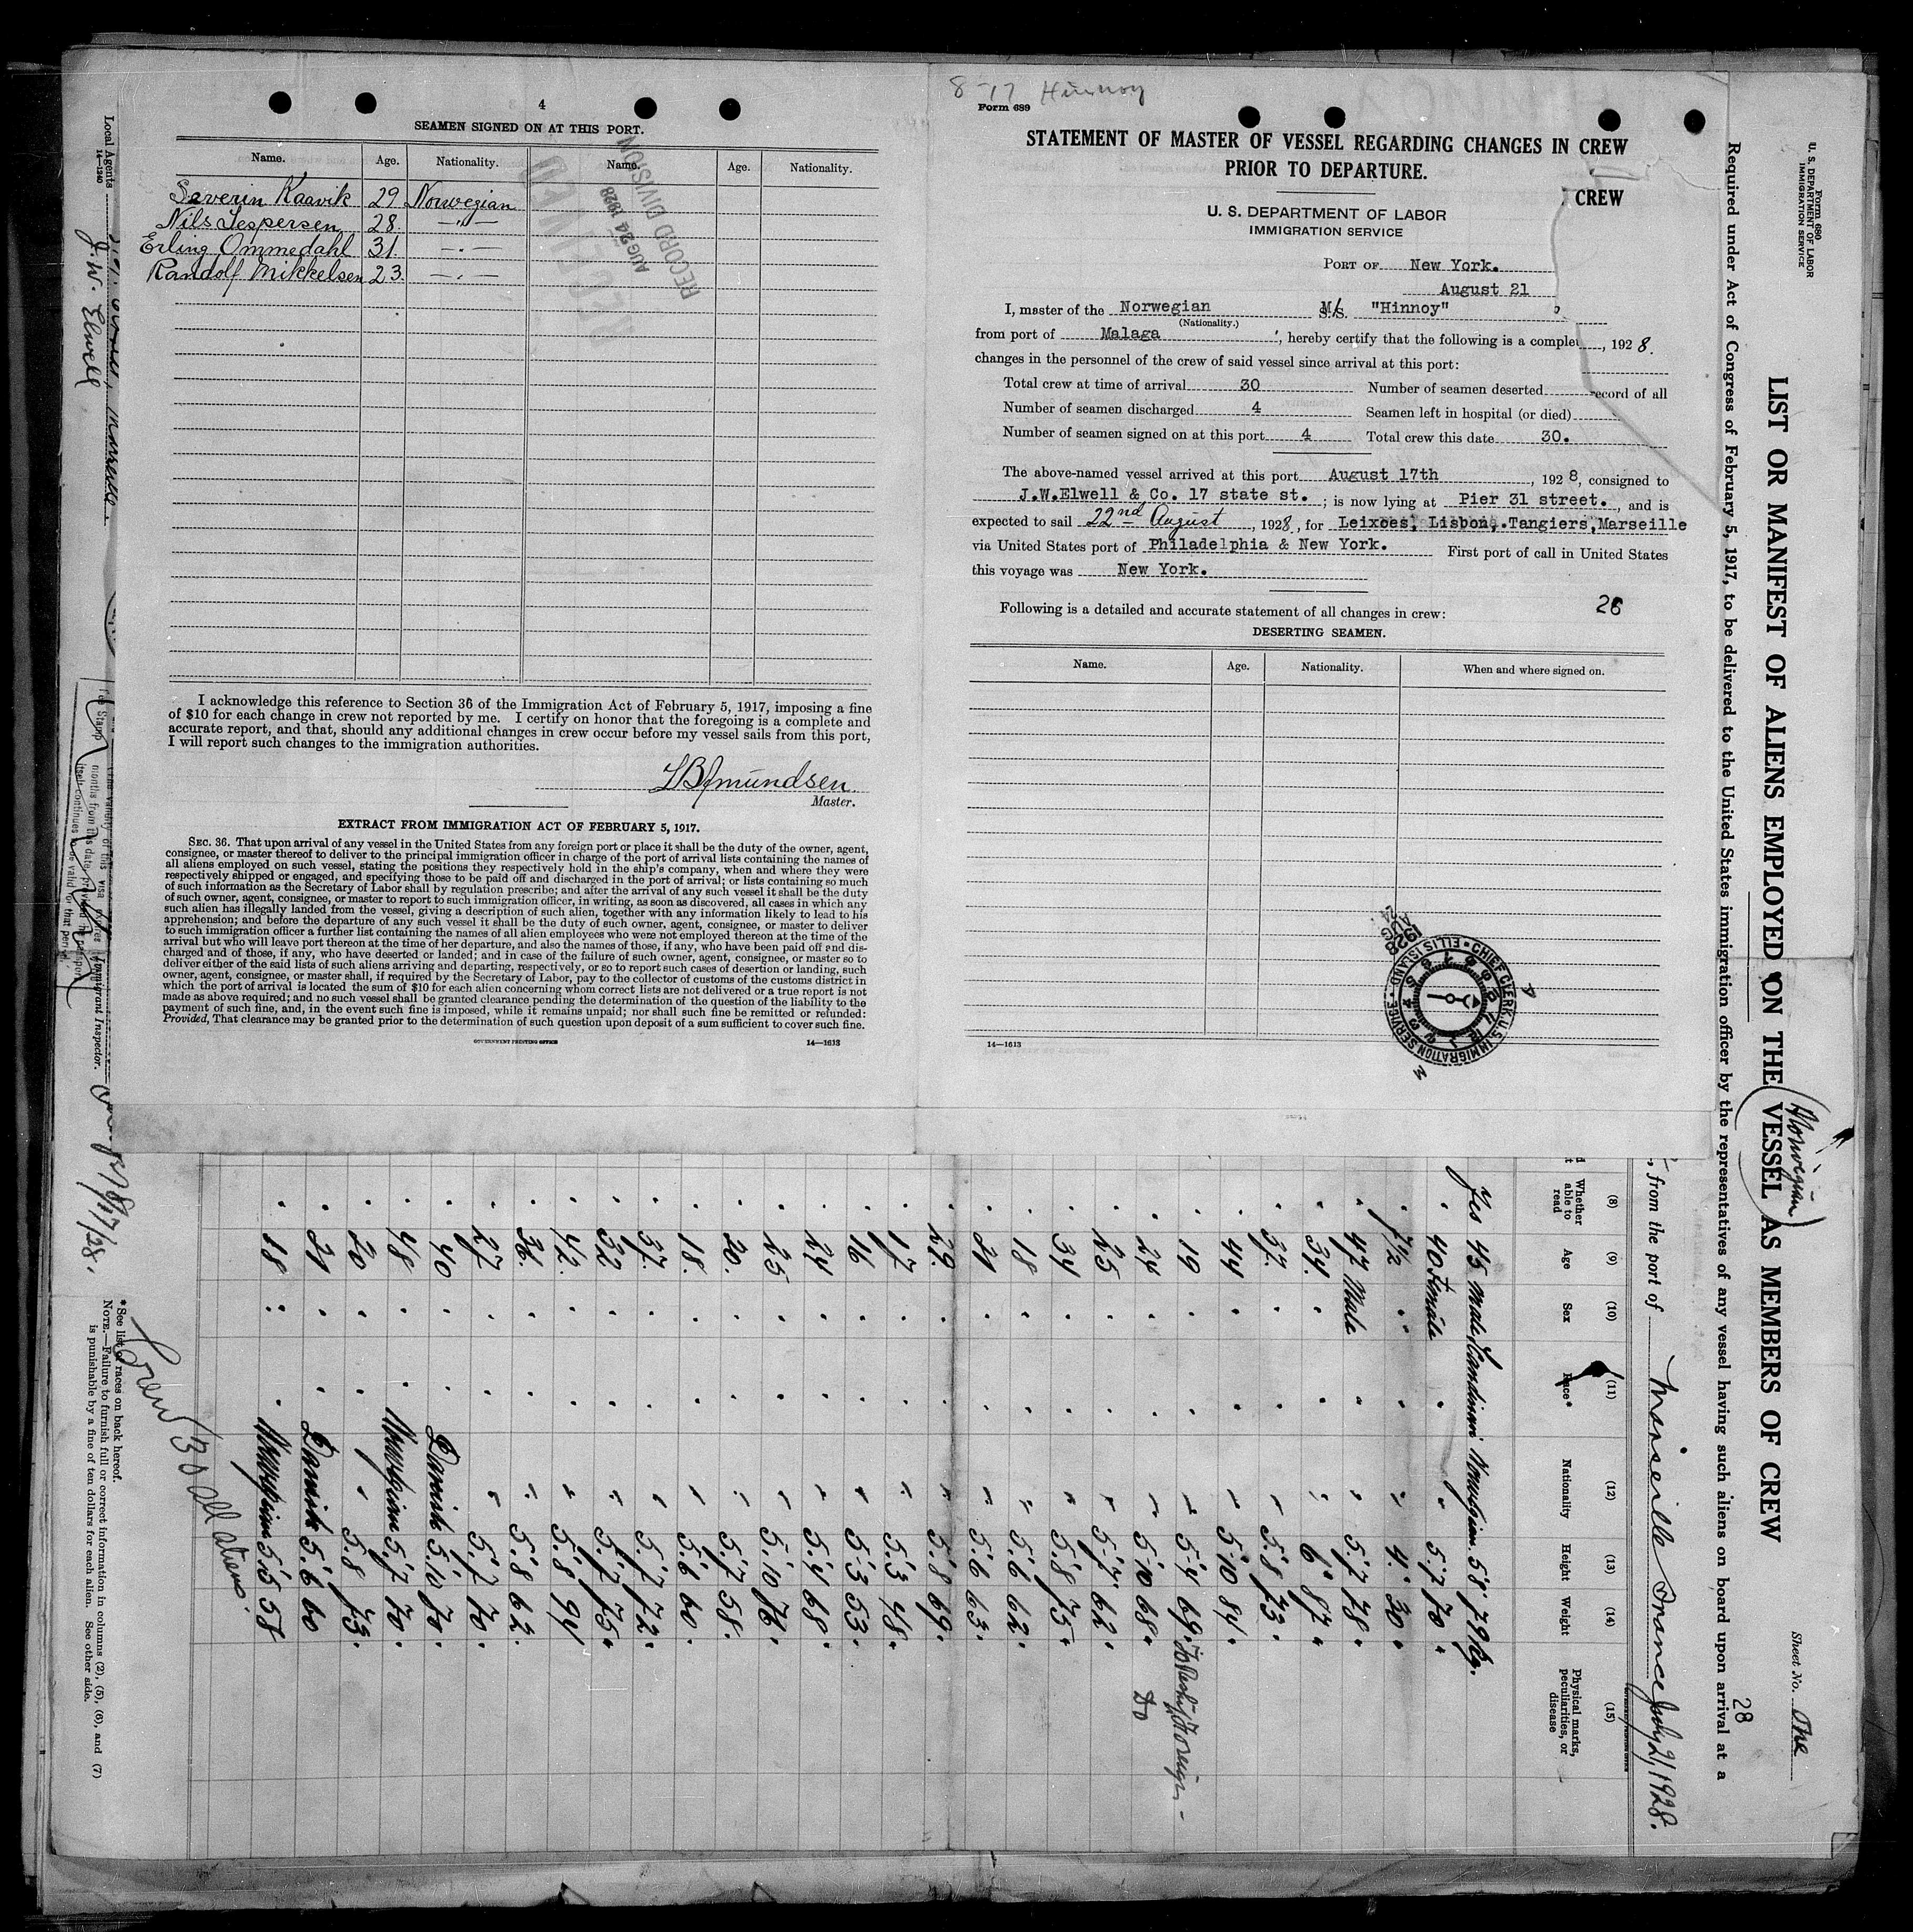 4
SEAMEN SIGNED ON AT THIS PORT.
Name. Age. Nationality. Name. Age. Nationality.
Severin Kaavik 29 Norwegian
Nils Jespersen 28. —"—
Erling Ommedahl 31. —"—
Randolf Mikkelsen 23. —"—
RECEIVED
AUG 24 1928
RECORD DIVISION
I acknowledge this reference to Section 36 of the Immigration Act of February 5, 1917, imposing a fine
of $10 for each change in crew not reported by me. I certify on honor that the foregoing is a complete and
accurate report, and that, should any additional changes in crew occur before my vessel sails from this port,
I will report such changes to the immigration authorities.
Master.
EXTRACT FROM IMMIGRATION ACT OF FEBRUARY 5, 1917.
SEC. 36. That upon arrival of any vessel in the United States from any foreign port or place it shall be the duty of the owner, agent,
consignee, or master thereof to deliver to the principal immigration officer in charge of the port of arrival lists containing the names of
all aliens employed on such vessel, stating the positions they respectively hold in the ship's company, when and where they were
respectively shipped or engaged, and specifying those to be paid off and discharged in the port of arrival; or lists containing so much
of such information as the Secretary of Labor shall by regulation prescribe; and after the arrival of any such vessel it shall be the duty
of such owner, agent, consignee, or master to report to such immigration officer, in writing, as soon as discovered, all cases in which any
such alien has illegally landed from the vessel, giving a description of such alien, together with any information likely to lead to his
apprehension; and before the departure of any such vessel it shall be the duty of such owner, agent, consignee, or master to deliver
to such immigration officer a further list containing the names of all alien employees who were not employed thereon at the time of the
arrival but who will leave port thereon at the time of her departure, and also the names of those, if any, who have been paid off and dis-
charged and of those, if any, who have deserted or landed; and in case of the failure of such owner, agent, consignee, or master so to
deliver either of the said lists of such aliens arriving and departing, respectively, or so to report such cases of desertion or landing, such
owner, agent, consignee, or master shall, if required by the Secretary of Labor, pay to the collector of customs of the customs district in
which the port of arrival is located the sum of $10 for each alien concerning whom correct lists are not delivered or a true report is not
made as above required; and no such vessel shall be granted clearance pending the determination of the question of the liability to the
payment of such fine, and, in the event such fine is imposed, while it remains unpaid; nor shall such fine be remitted or refunded:
Provided, That clearance may be granted prior to the determination of such question upon deposit of a sum sufficient to cover such fine.
GOVERNMENT PRINTING OFFICE 14—1613
8-17 Hinnoy
Form 689
STATEMENT OF MASTER OF VESSEL REGARDING CHANGES IN CREW
PRIOR TO DEPARTURE.
CREW
U. S. DEPARTMENT OF LABOR
IMMIGRATION SERVICE
PORT OF New York.
August 21
I, master of the Norwegian M/S. "Hinnoy"
(Nationality.)
from port of Malaga, hereby certify that the following is a complet , 1928.
changes in the personnel of the crew of said vessel since arrival at this port:
Total crew at time of arrival 30 Number of seamen deserted record of all
Number of seamen discharged 4 Seamen left in hospital (or died)
Number of seamen signed on at this port 4 Total crew this date 30.
The above-named vessel arrived at this port August 17th, 1928, consigned to
J.W.Elwell & Co. 17 state st. ; is now lying at Pier 31 street., and is
expected to sail 22nd August, 1928, for Leixoes, Lisbon, Tangiers, Marseille
via United States port of Philadelphia & New York. First port of call in United States
this voyage was New York.
Following is a detailed and accurate statement of all changes in crew: 28
DESERTING SEAMEN.
Name. Age. Nationality. When and where signed on.
CHIEF CLERK U.S. IMMIGRATION SERVICE • ELLIS ISLAND •
AUG 24 1928
14—1613
Form 680
U. S. DEPARTMENT OF LABOR
IMMIGRATION SERVICE
Sheet No. One
LIST OR MANIFEST OF ALIENS EMPLOYED ON THE VESSEL AS MEMBERS OF CREW
(Norwegian)
28
Required under Act of Congress of February 5, 1917, to be delivered to the United States immigration officer by the representatives of any vessel having such aliens on board upon arrival at a
, from the port of Marseille France July 21 1928.
(8) (9) (10) (11) (12) (13) (14) (15)
Whether able to read Age Sex Race* Nationality Height Weight Physical marks, peculiarities, or disease
Yes 45 Male Scandinavi Norwegian 5'8 79 kg.
" 40 Female " " 5.7 70 "
" 7½ " " " 4. 30 "
" 47 Male " " 5.7 78 "
" 34. " " " 6" 87 "
" 37. " " " 5.8 73.
" 44 " " " 5.10 84.
" 19 " " " 5.4 69.
" 24 " " " 5.10 68. Do
" 25 " " " 5.7 62.
" 34 " " " 5.8 75.
" 18 " " " 5.6 62.
" 21 " " " 5.6 63.
" 29. " " " 5.8 69.
" 17 " " " 5.3 48.
" 16 " " " 5.3 53.
" 24 " " " 5.4 68.
" 25 " " " 5.10 76.
" 20. " " " 5.7 58.
" 18. " " " 5.6 60.
" 37. " " " 5.7 72.
" 32 " " " 5.7 75.
" 42. " " " 5.8 94
" 36. " " " 5.8 62.
" 27 " " " 5.7 70.
" 40 " " Danish 5.10 70.
" 48 " " Norwegian 5.7 70.
" 20 " " " 5.8 73.
" 21 " " Danish 5.6 60
" 18 " " Norwegian 5.5 58
Crew 30 all aliens.
*See list of races on back hereof.
NOTE.—Failure to furnish full or correct information in columns (2), (5), (6), and (7)
is punishable by a fine of ten dollars for each alien. See other side.
Local Agents
14—1240
J. W. Elwell
Immigrant Inspector.
8/17/28.